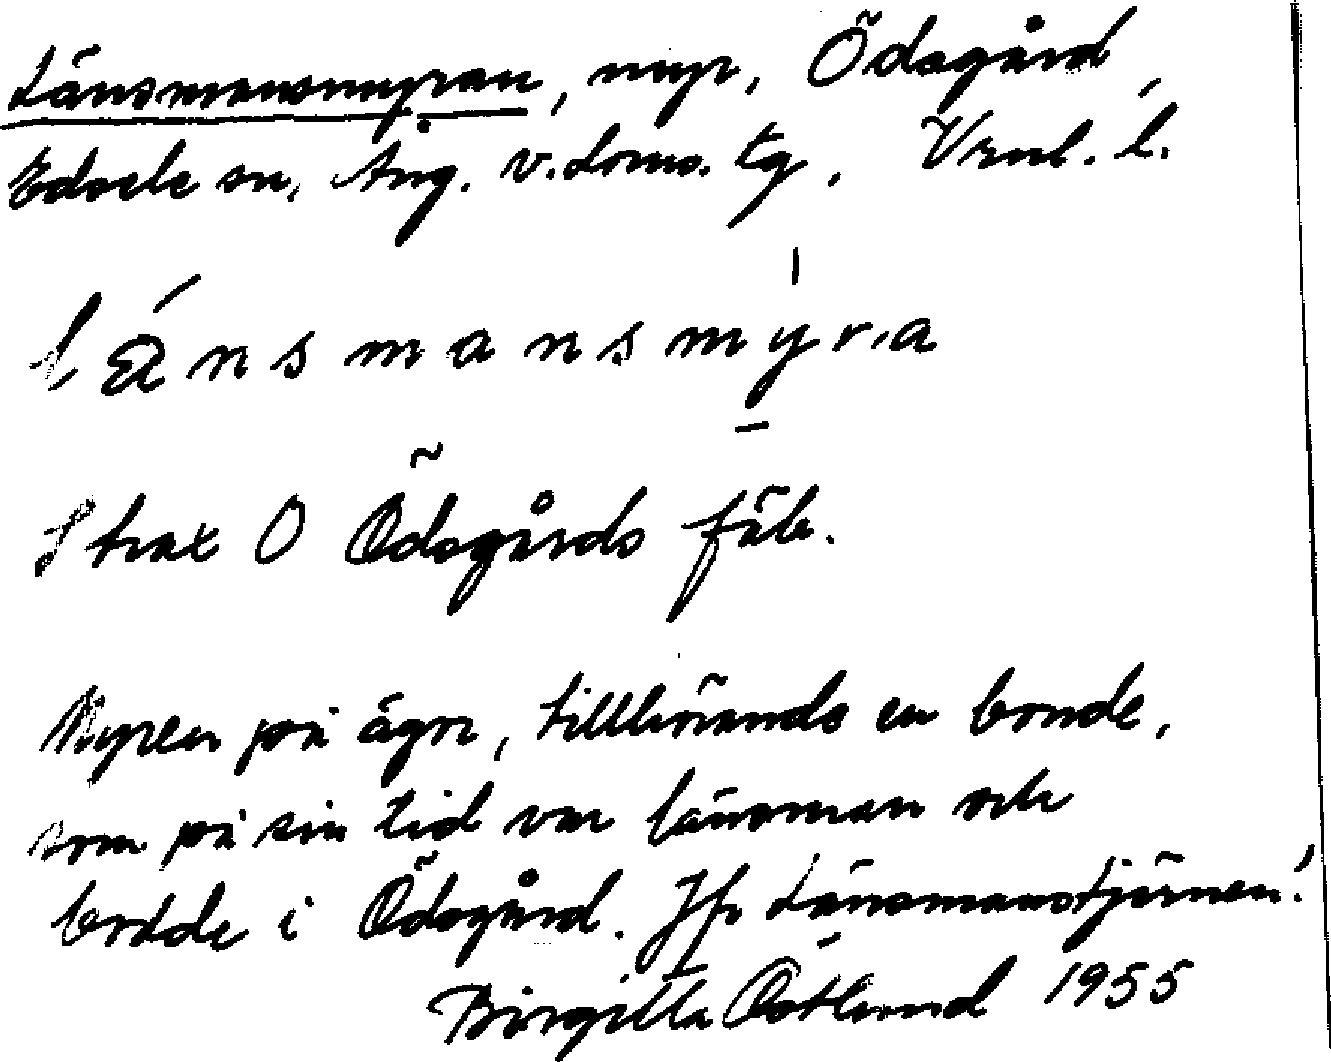 Länsmansmyran, myr, Ödsgård
Edsele sn, Ång. v. doms. tg, Vrnl. l.
lánsmansmýra
Strax O Ödsgårds fäb.
Myren på ägor, tillhörands en bonde,
som på sin tid var länsman och
bodde i Ödsgård. Jfr Länsmanstjärnen!
Birgitta Östlund 1955